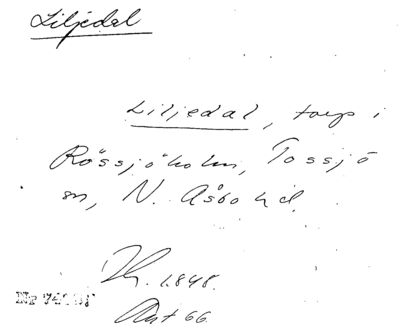 Liljedal
Liljedal, torp i
Rössjöholm, Tossjö
sn, N. Åsbo hd.
1848.
66.
Nr